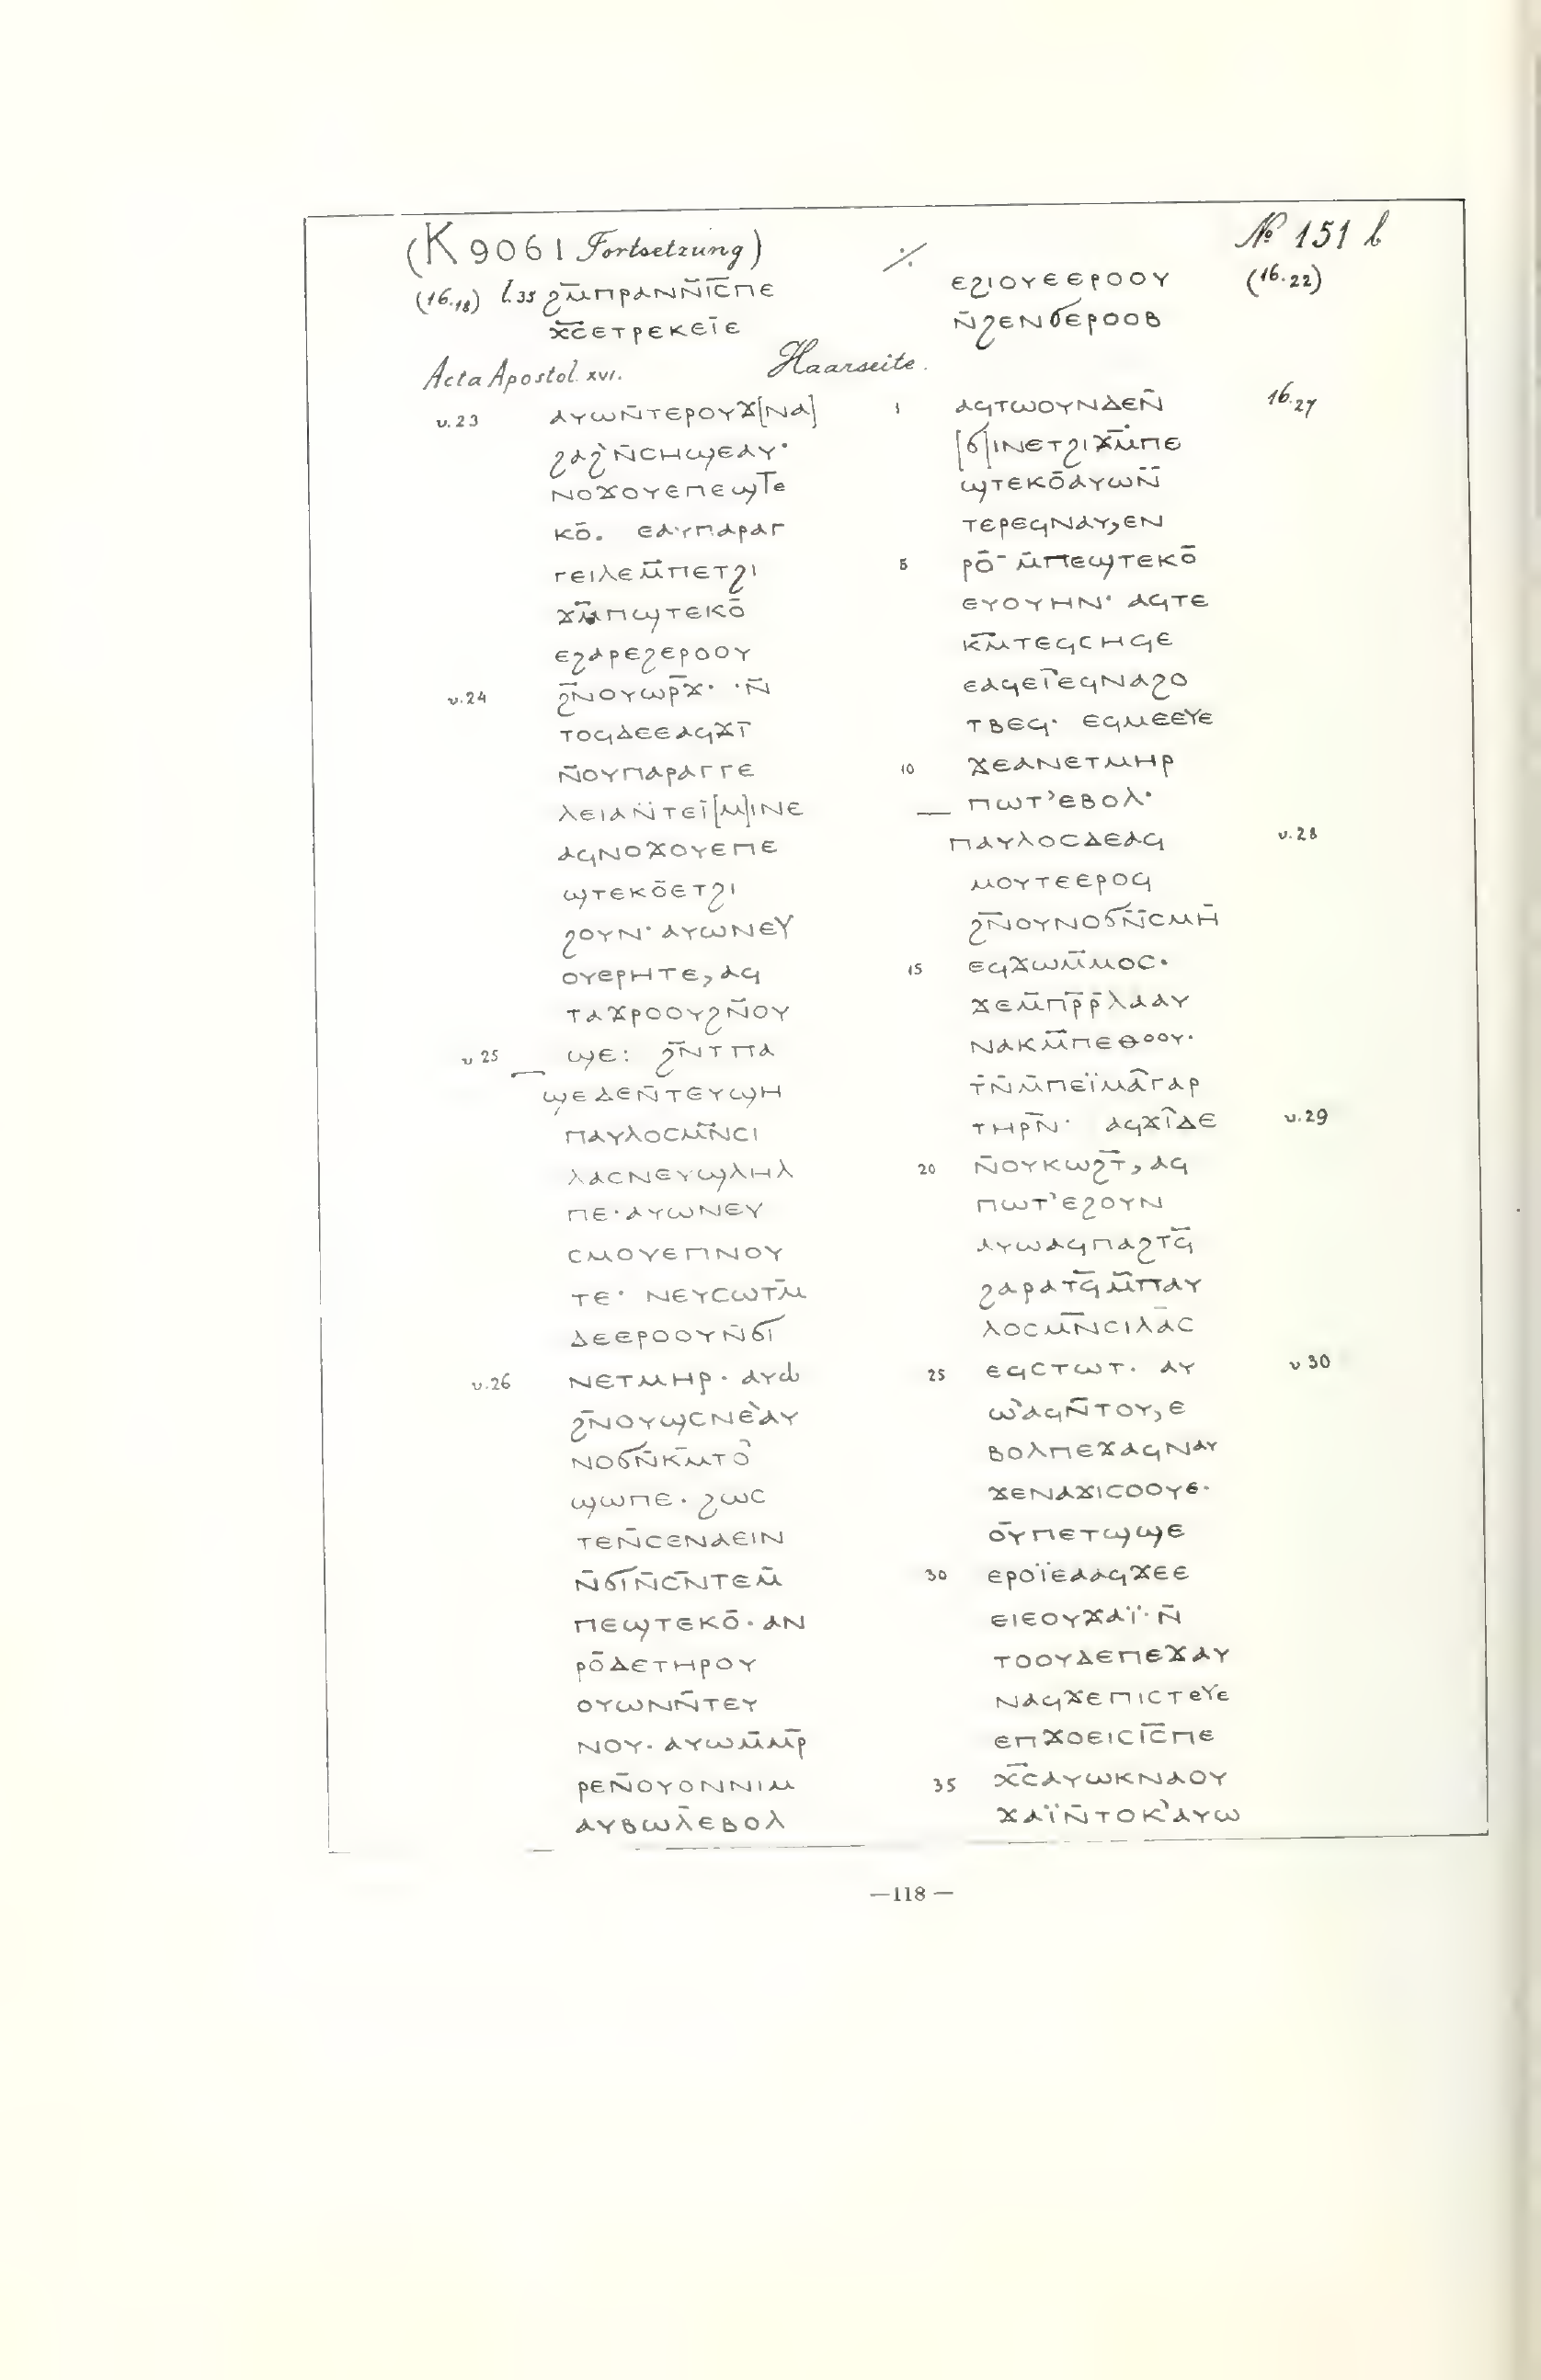 (K 9061 Fortsetzung) ⁒ № 151 b
(16.18) l.35 ϩⲙ̄ⲡⲣⲁⲛⲛ̄ⲓ̄ⲥ̄ⲡⲉ
ⲭ̄ⲥ̄ⲉⲧⲣⲉⲕⲉⲓ̄ⲉ
ⲉϩⲓⲟⲩⲉⲉⲣⲟⲟⲩ (16.22)
ⲛ̄ϩⲉⲛϭⲉⲣⲟⲟⲃ
Acta Apostol. XVI. Haarseite.
v.23 ⲁⲩⲱⲛ̄ⲧⲉⲣⲟⲩϫ[ⲛⲁ]
ϩⲁϩ̀ⲛ̄ⲥⲏϣⲉⲁⲩ·
ⲛⲟϫⲟⲩⲉⲡⲉϣⲧⲉ
ⲕⲟ̄. ⲉⲁⲩⲡⲁⲣⲁⲅ
ⲅⲉⲓⲗⲉⲙ̄ⲡⲉⲧϩⲓ
ϫⲙ̄ⲡϣⲧⲉⲕⲟ̄
ⲉϩⲁⲣⲉϩⲉⲣⲟⲟⲩ
v.24 ϩⲛ̄ⲟⲩⲱⲣ̄ϫ· ·ⲛ̄
ⲧⲟϥⲇⲉⲉⲁϥϫⲓ̄
ⲛ̄ⲟⲩⲡⲁⲣⲁⲅⲅⲉ
ⲗⲉⲓⲁⲛ̈ⲧⲉⲓ̄[ⲙ]ⲓⲛⲉ
ⲁϥⲛⲟϫⲟⲩⲉⲡⲉ
ϣⲧⲉⲕⲟ̄ⲉⲧϩⲓ
ϩⲟⲩⲛ· ⲁⲩⲱⲛⲉⲩ
ⲟⲩⲉⲣⲏⲧⲉ, ⲁϥ
ⲧⲁϫⲣⲟⲟⲩϩⲛ̄ⲟⲩ
v 25 ϣⲉ: ϩⲛ̄ⲧⲡⲁ
ϣⲉⲇⲉⲛ̄ⲧⲉⲩϣⲏ
ⲡⲁⲩⲗⲟⲥⲙⲛ̄ⲥⲓ
ⲗⲁⲥⲛⲉⲩϣⲗⲏⲗ
ⲡⲉ·ⲁⲩⲱⲛⲉⲩ
ⲥⲙⲟⲩⲉⲡⲛⲟⲩ
ⲧⲉ· ⲛⲉⲩⲥⲱⲧⲙ̄
ⲇⲉⲉⲣⲟⲟⲩⲛ̄ϭⲓ̄
v.26 ⲛⲉⲧⲙⲏⲣ· ⲁⲩⲱ
ϩⲛ̄ⲟⲩϣⲥⲛⲉ̀ⲁⲩ
ⲛⲟϭⲛ̄ⲕ̄ⲙⲧⲟ̂
ϣⲱⲡⲉ· ϩⲱⲥ
ⲧⲉⲛ̄ⲥⲉⲛⲁⲉⲓⲛ
ⲛ̄ϭⲓ̄ⲛ̄ⲥⲛ̄ⲧⲉⲙ̄
ⲡⲉϣⲧⲉⲕⲟ̄·ⲁⲛ
ⲣⲟ̄ⲇⲉⲧⲏⲣⲟⲩ
ⲟⲩⲱⲛⲛ̄ⲧⲉⲩ
ⲛⲟⲩ· ⲁⲩⲱⲙ̄ⲙⲣ̄
ⲣⲉⲛ̄ⲟⲩⲟⲛⲛⲓⲙ
ⲁⲩⲃⲱⲗ̄ⲉⲃⲟⲗ
1 ⲁϥⲧⲱⲟⲩⲛⲇⲉⲛ̄ 16.27
[ϭ]ⲓⲛⲉⲧϩⲓϫⲙ̄ⲡⲉ
ϣⲧⲉⲕⲟ̄ⲁⲩⲱⲛ̄
ⲧⲉⲣⲉϥⲛⲁⲩ,ⲉⲛ
5 ⲣⲟ̄- ⲙ̄ⲡⲉϣⲧⲉⲕⲟ̄
ⲉⲩⲟⲩⲏⲛ· ⲁϥⲧⲉ
ⲕⲙ̄ⲧⲉϥⲥⲏϥⲉ
ⲉⲁϥⲉⲓ̄ⲉϥⲛⲁϩⲟ
ⲧⲃⲉϥ· ⲉϥⲙⲉⲉⲩⲉ
10 ϫⲉⲁⲛⲉⲧⲙⲏⲣ
ⲡⲱⲧ’ⲉⲃⲟⲗ·
ⲡⲁⲩⲗⲟⲥⲇⲉⲁϥ v.28
ⲙⲟⲩⲧⲉⲉⲣⲟϥ
ϩⲛ̄ⲟⲩⲛⲟϭⲛ̄ⲥⲙⲏ̄
15 ⲉϥϫⲱⲙ̄ⲙⲟⲥ·
ϫⲉⲙ̄ⲡⲣ̄ⲣ̄ⲗⲁⲁⲩ
ⲛⲁⲕⲙ̄ⲡⲉⲑⲟⲟⲩ·
ⲧⲛ̄ⲙ̄ⲡⲉⲓ̈ⲙⲁ̂ⲅⲁⲣ
ⲧⲏⲣⲛ̄· ⲁϥϫⲓ̂ⲇⲉ v.29
20 ⲛ̄ⲟⲩⲕⲱϩⲧ̄, ⲁϥ
ⲡⲱⲧ’ⲉϩⲟⲩⲛ
ⲁⲩⲱⲁϥⲡⲁϩⲧϥ̄
ϩⲁⲣⲁⲧϥ̄ⲙ̄ⲡⲁⲩ
ⲗⲟⲥⲙⲛ̄ⲥⲓⲗⲁ̄ⲥ
25 ⲉϥⲥⲧⲱⲧ· ⲁⲩ v 30
ⲱ̀ⲁϥⲛ̄ⲧⲟⲩ,ⲉ
ⲃⲟⲗⲡⲉϫⲁϥⲛⲁⲩ
ϫⲉⲛⲁϫⲓⲥⲟⲟⲩⲉ·
ⲟ̄ⲩⲡⲉⲧϣϣⲉ
30 ⲉⲣⲟⲓ̈ⲉⲁⲁϥϫⲉⲉ
ⲉⲓⲉⲟⲩϫⲁⲓ̈·ⲛ̄
ⲧⲟⲟⲩⲇⲉⲡⲉϫⲁⲩ
ⲛⲁϥϫⲉⲡⲓⲥⲧⲉⲩⲉ
ⲉⲡϫⲟⲉⲓⲥⲓ̄ⲥ̄ⲡⲉ
35 ⲭ̄ⲥ̄ⲁⲩⲱⲕⲛⲁⲟⲩ
ϫⲁⲓ̈ⲛ̄ⲧⲟⲕ’ⲁⲩⲱ
—118—